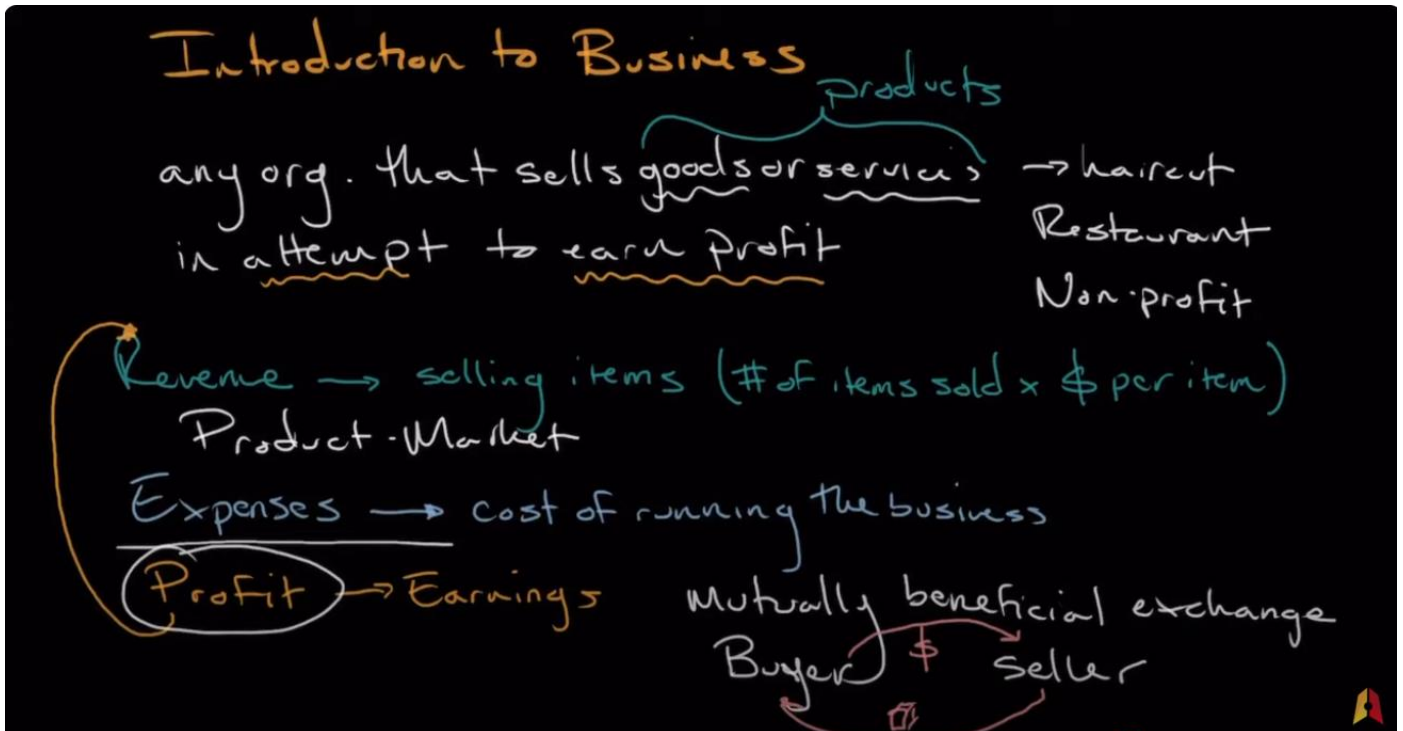 Introduction to Business
products
any org. that sells goods or services → haircut
in attempt to earn profit
Restaurant
Non-profit
Revenue → selling items (# of items sold x $ per item)
Product-Market
Expenses → cost of running the business
Profit → Earnings
Mutually beneficial exchange
Buyer $ seller